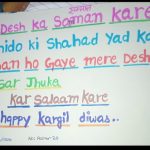 Desh ka Samman kare
hido ki Shahad Yad ka
an ho Gaye mere Desh
Sar Jhuka
kar Salaam kare
happy kargil diwas..